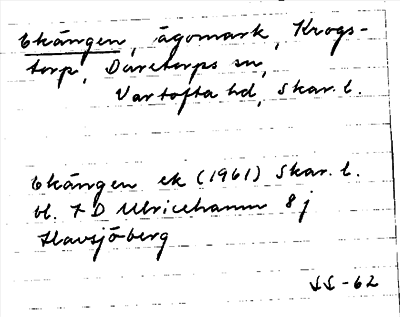 Ekängen, ägomark, Krogs-
torp, Daretorps sn,
Vartofta hd, Skar. l.
Ekängen ek (1961) Skar. l.
bl. 7 D Ulricehamn 8 j
Havsjöberg
SS -62